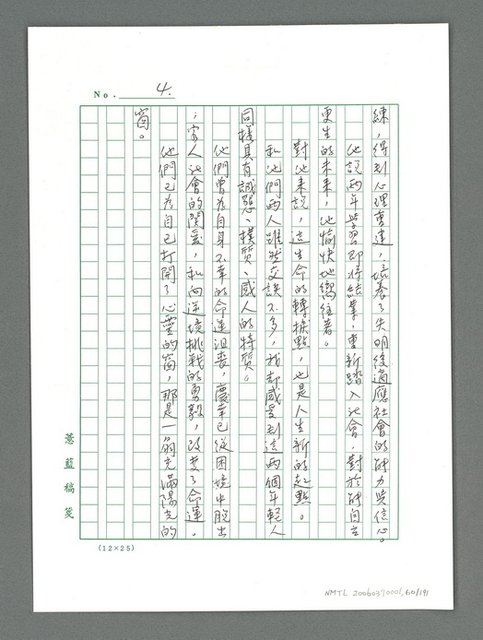 No. 4.
練，得到心理重建，培養了失明後適應社會的能力與信心。
他說兩年學習即將結業，重新踏入社會，對於能自立
更生的未來，他愉快地嚮往著。
對他來說，這生命的轉捩點，也是人生新的起點。
和他們兩人雖然交談不多，我却感受到這兩個年輕人
同樣具有誠懇、樸質、感人的特質。
他們曾為自身不幸的命運沮喪，慶幸已從困境中脫出
；家人社會的關愛，和向逆境挑戰的勇毅，改變了命運。
他們已為自己打開了心靈的窗，那是一扇充滿陽光的
窗。
薏藍稿箋
(12×25)
NMTL 20060370001,60/191